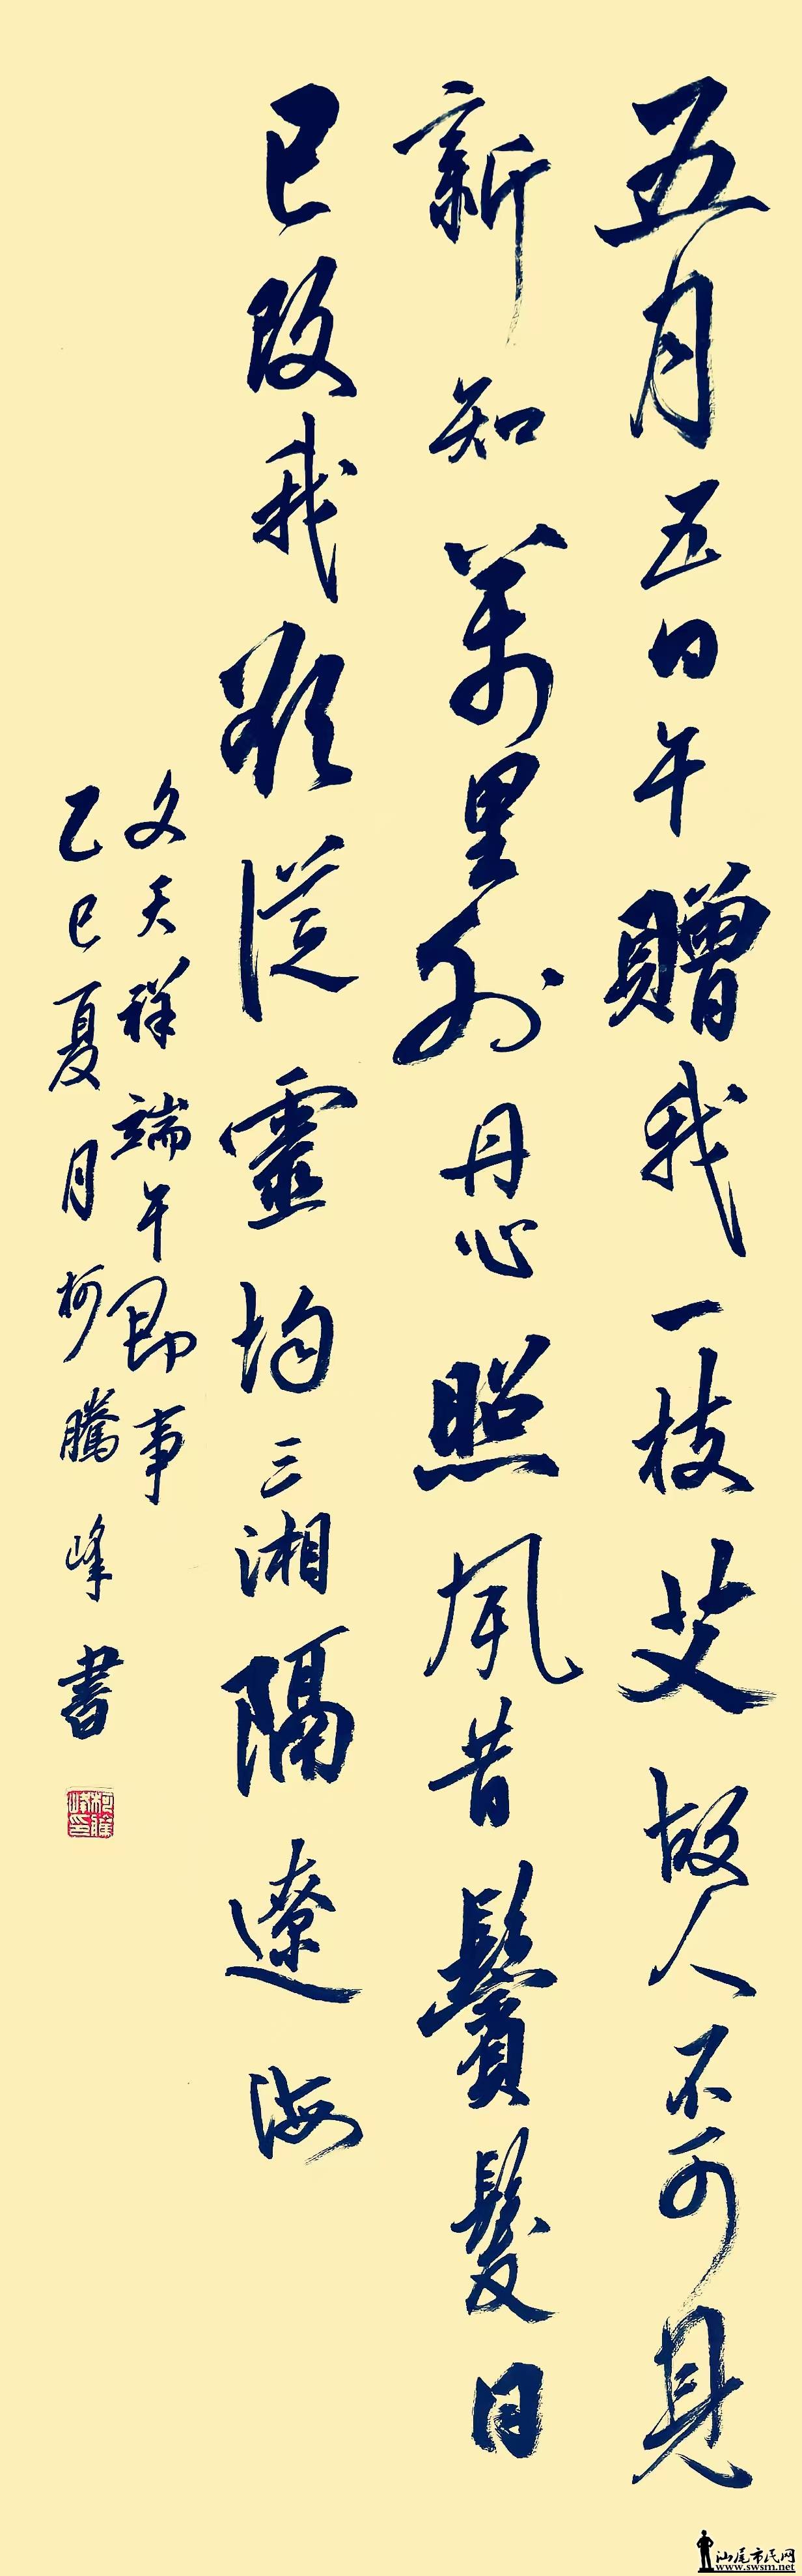 五月五日午贈我一枝艾故人不可見
新知萬里外丹心照夙昔鬢髮日
已改我欲從靈均三湘隔遼海
文天祥端午即事
乙巳夏月柯騰峰書
柯騰峰印
汕尾市民网
www.swsm.net